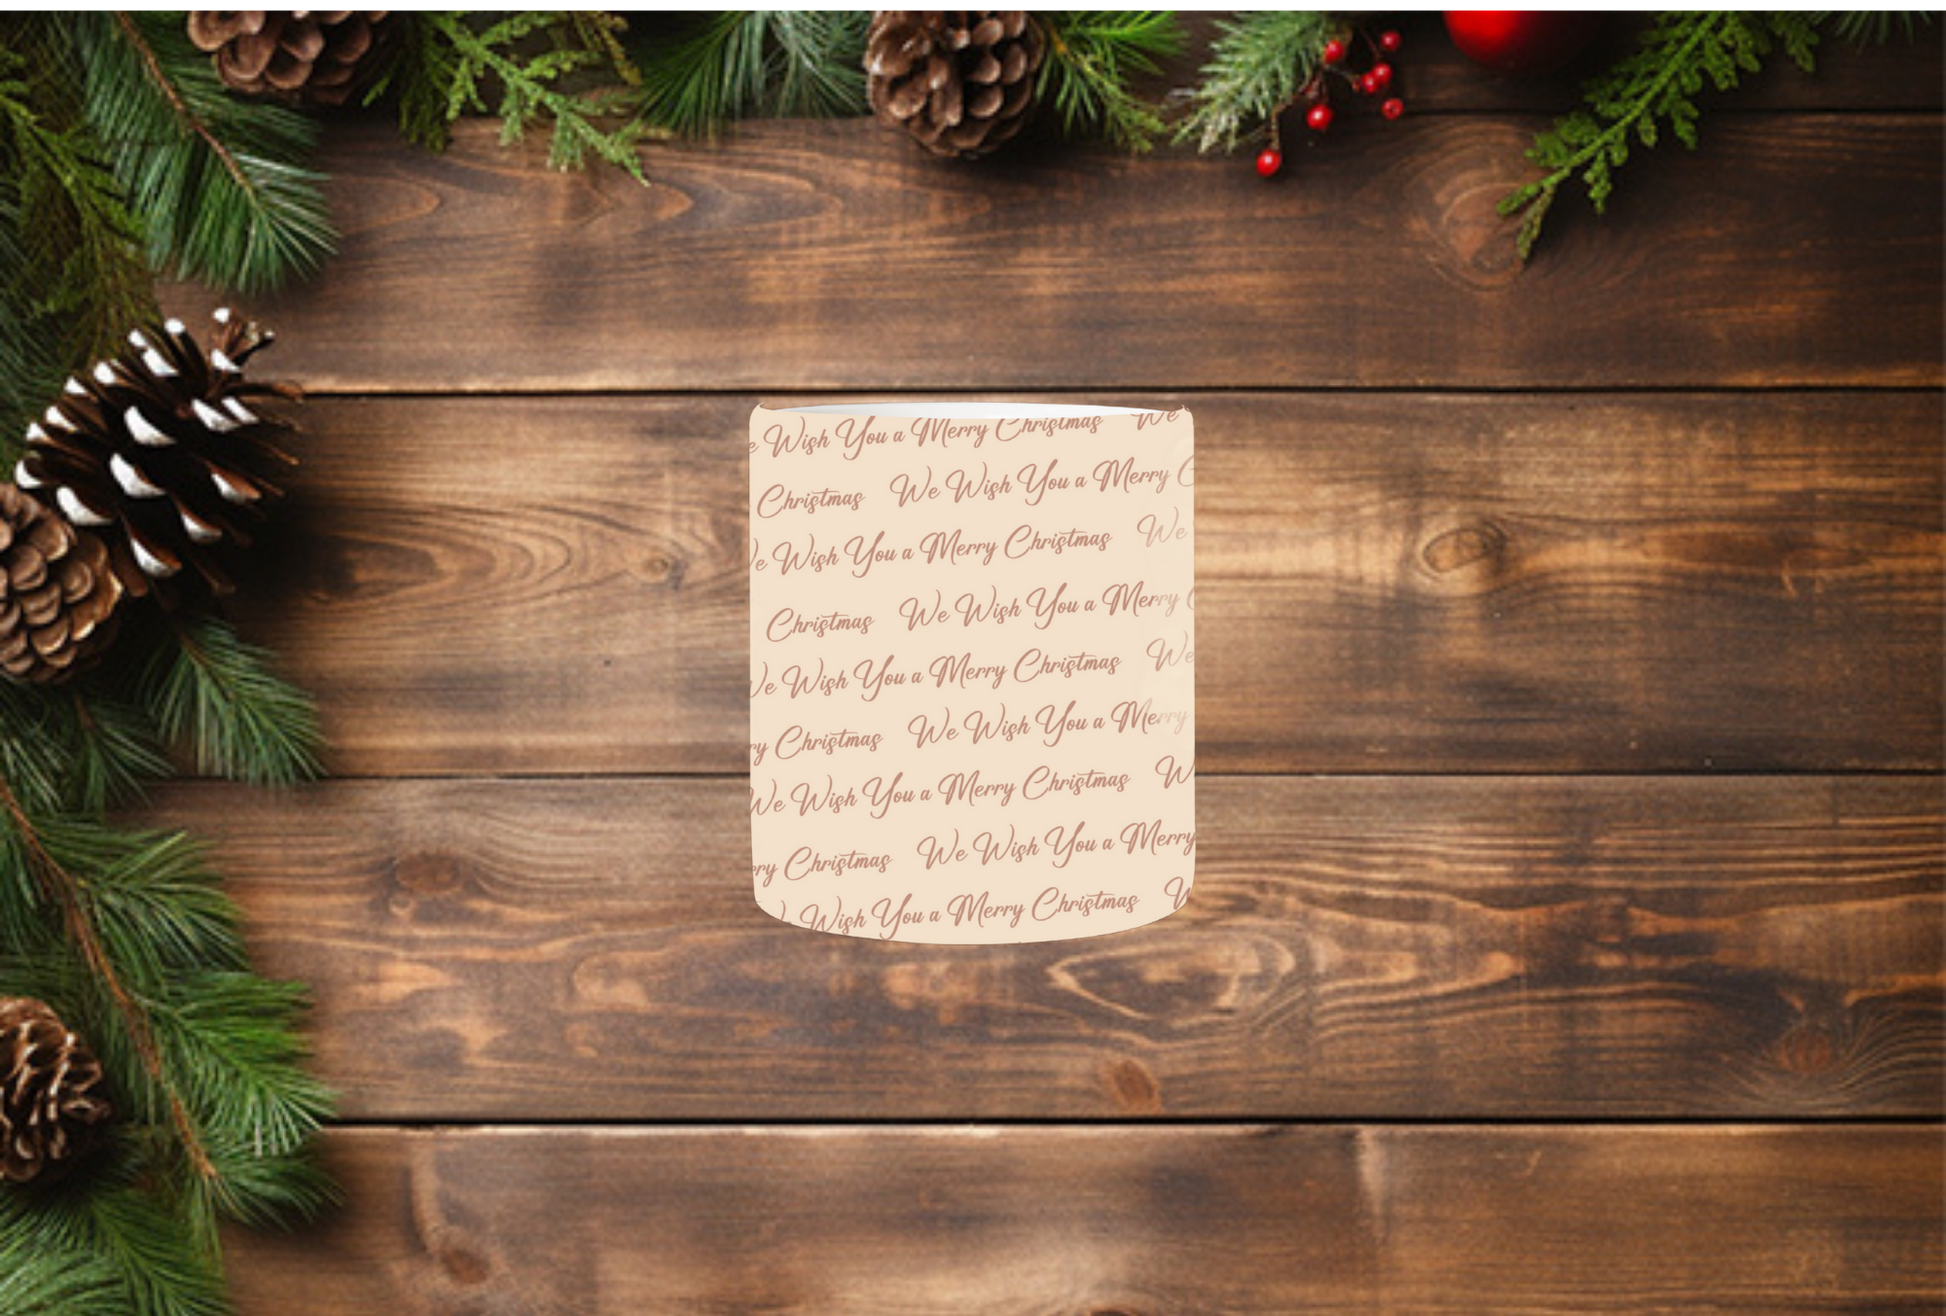 e Wish You a Merry Christmas We
Christmas We Wish You a Merry C
We Wish You a Merry Christmas We
Christmas We Wish You a Merry
We Wish You a Merry Christmas We
ry Christmas We Wish You a Merry
We Wish You a Merry Christmas W
ry Christmas We Wish You a Merry
Wish You a Merry Christmas W